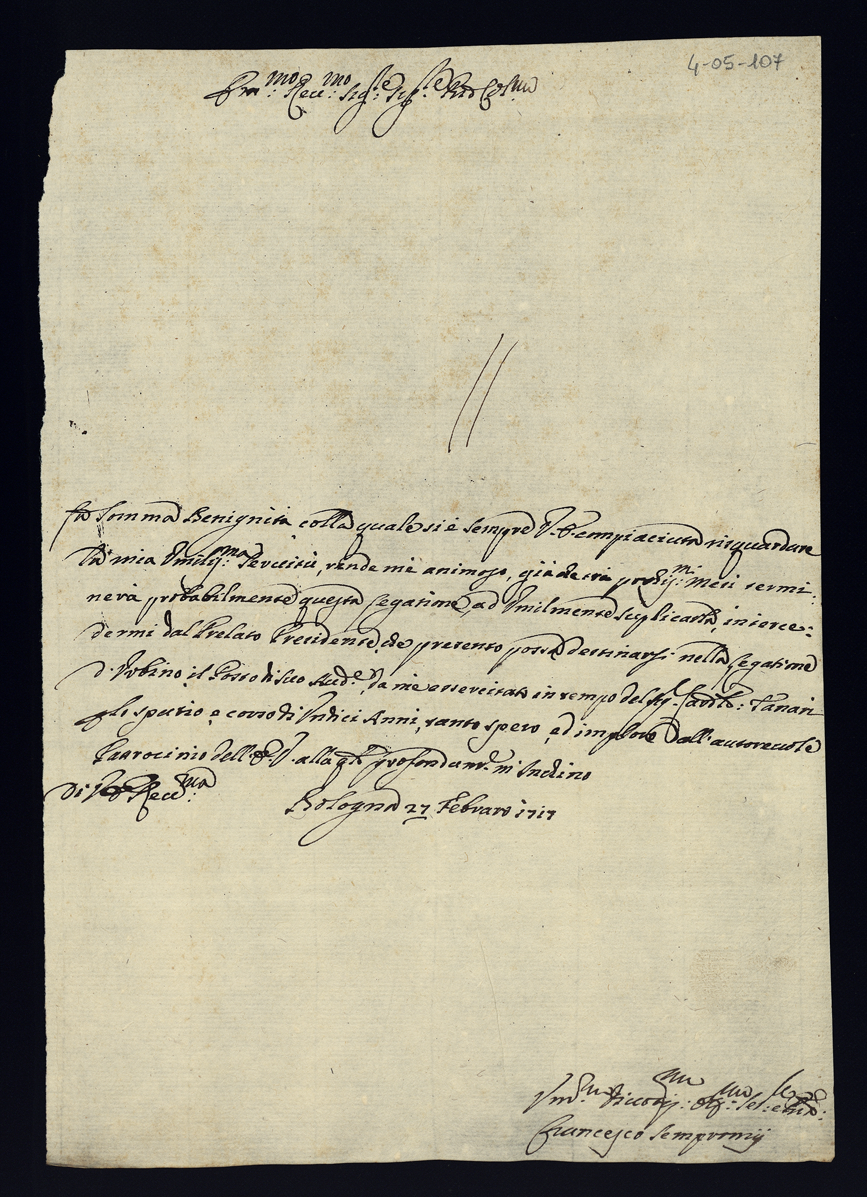 4-05-107
Em:mo Rece:mo Sig:re Sig:re Pron Col:mo
La somma Benignità colla quale si è sempre V. E. compiaciuta risguardare
la mia Umiliss:ma Servitù, rende me animoso, già che tra pross:mi Mesi termi:
nerà probabilmente questa Legatione, ad Umilmente suplicarla, interce:
dermi dal Prelato Presidente, che presento possa destinarsi nella Legatione
d'Urbino il Posto di suo Aud:e, da me essercitato in tempo del Sig:r Card:le: Tanari
Lo spatio, e corso di Undici Anni, tanto spero, ed imploro dall'autorevole
Patrocinio dell'E. V. alla qle profondam:e m'Inclino
Di V. E. Rece:ma
Bologna 27 Febraro 1717
Um:mo Divotiss:mo Obl:mo Se:
Francesco Sempronij